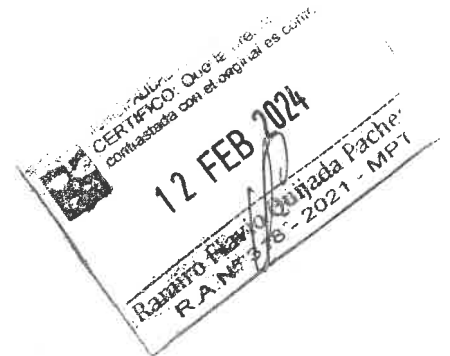 CERTIFICO: Que la
contrastada con el original es
12 FEB 2024
Ramiro Flavio Quijada Pache
R.A.N° 378 - 2021 - MPT